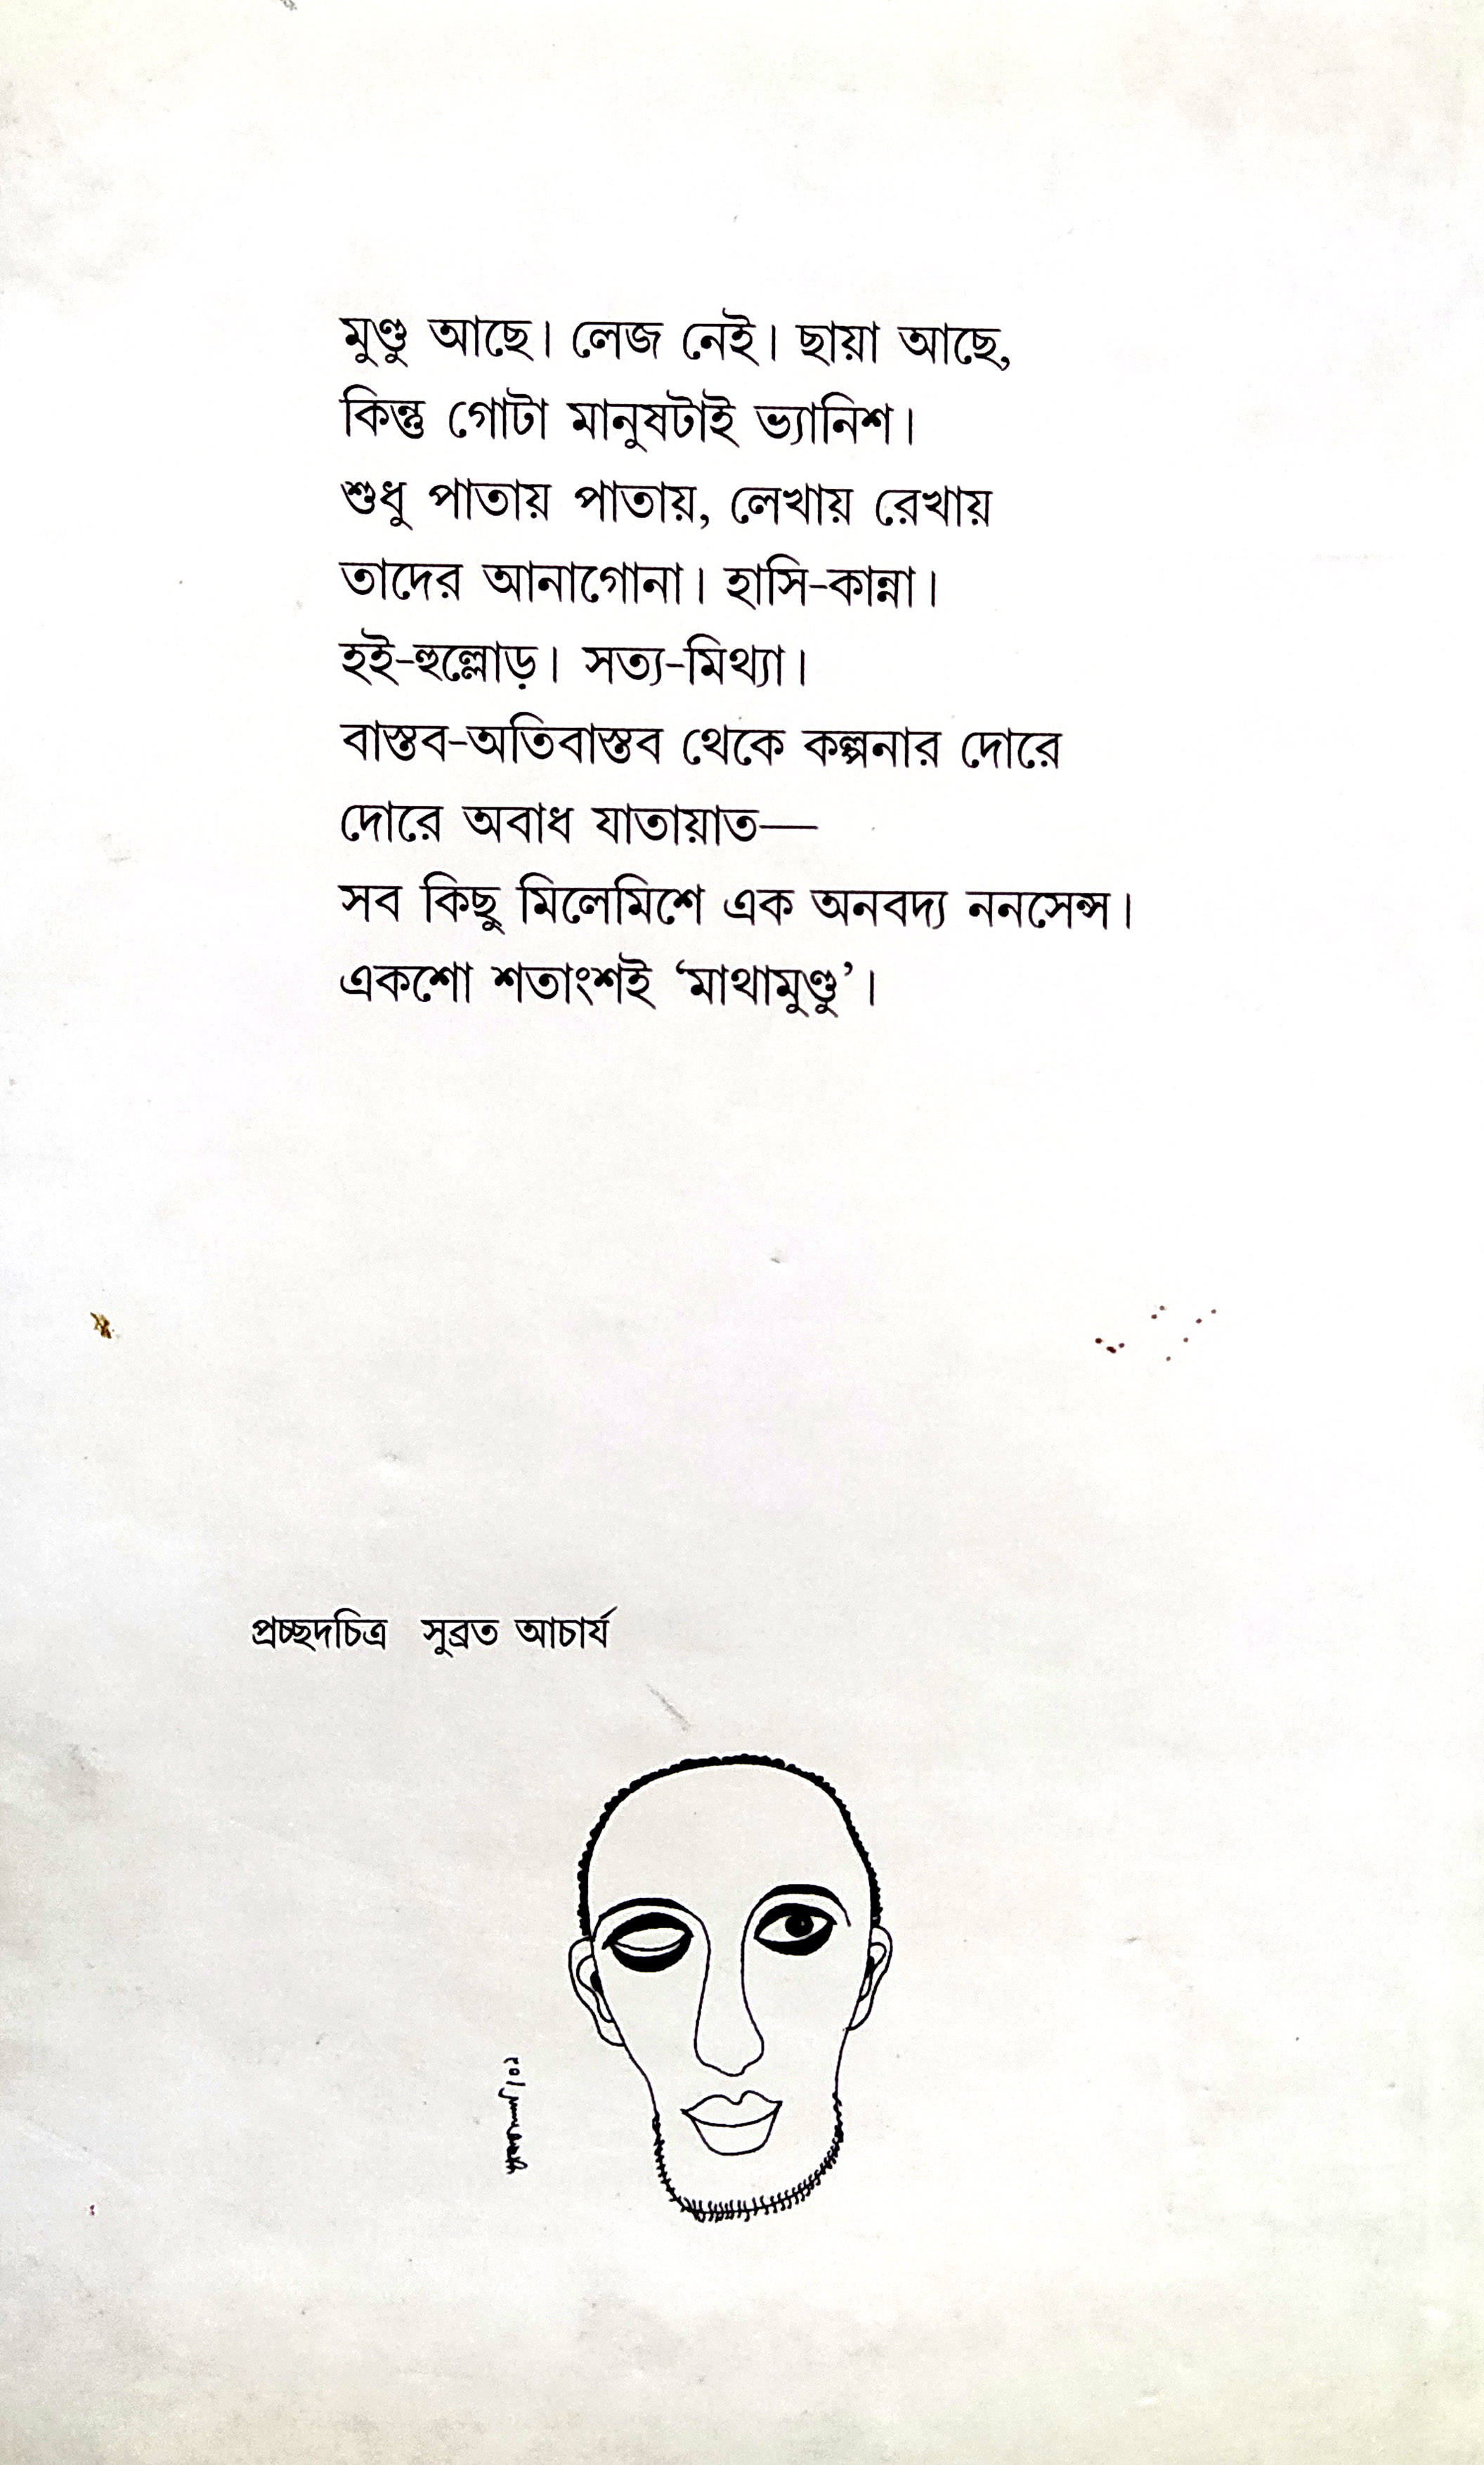 মুণ্ডু আছে। লেজ নেই। ছায়া আছে,
কিন্তু গোটা মানুষটাই ভ্যানিশ।
শুধু পাতায় পাতায়, লেখায় রেখায়
তাদের আনাগোনা। হাসি-কান্না।
হই-হুল্লোড়। সত্য-মিথ্যা।
বাস্তব-অতিবাস্তব থেকে কল্পনার দোরে
দোরে অবাধ যাতায়াত—
সব কিছু মিলেমিশে এক অনবদ্য ননসেন্স।
একশো শতাংশই ‘মাথামুণ্ডু’।
প্রচ্ছদচিত্র সুব্রত আচার্য